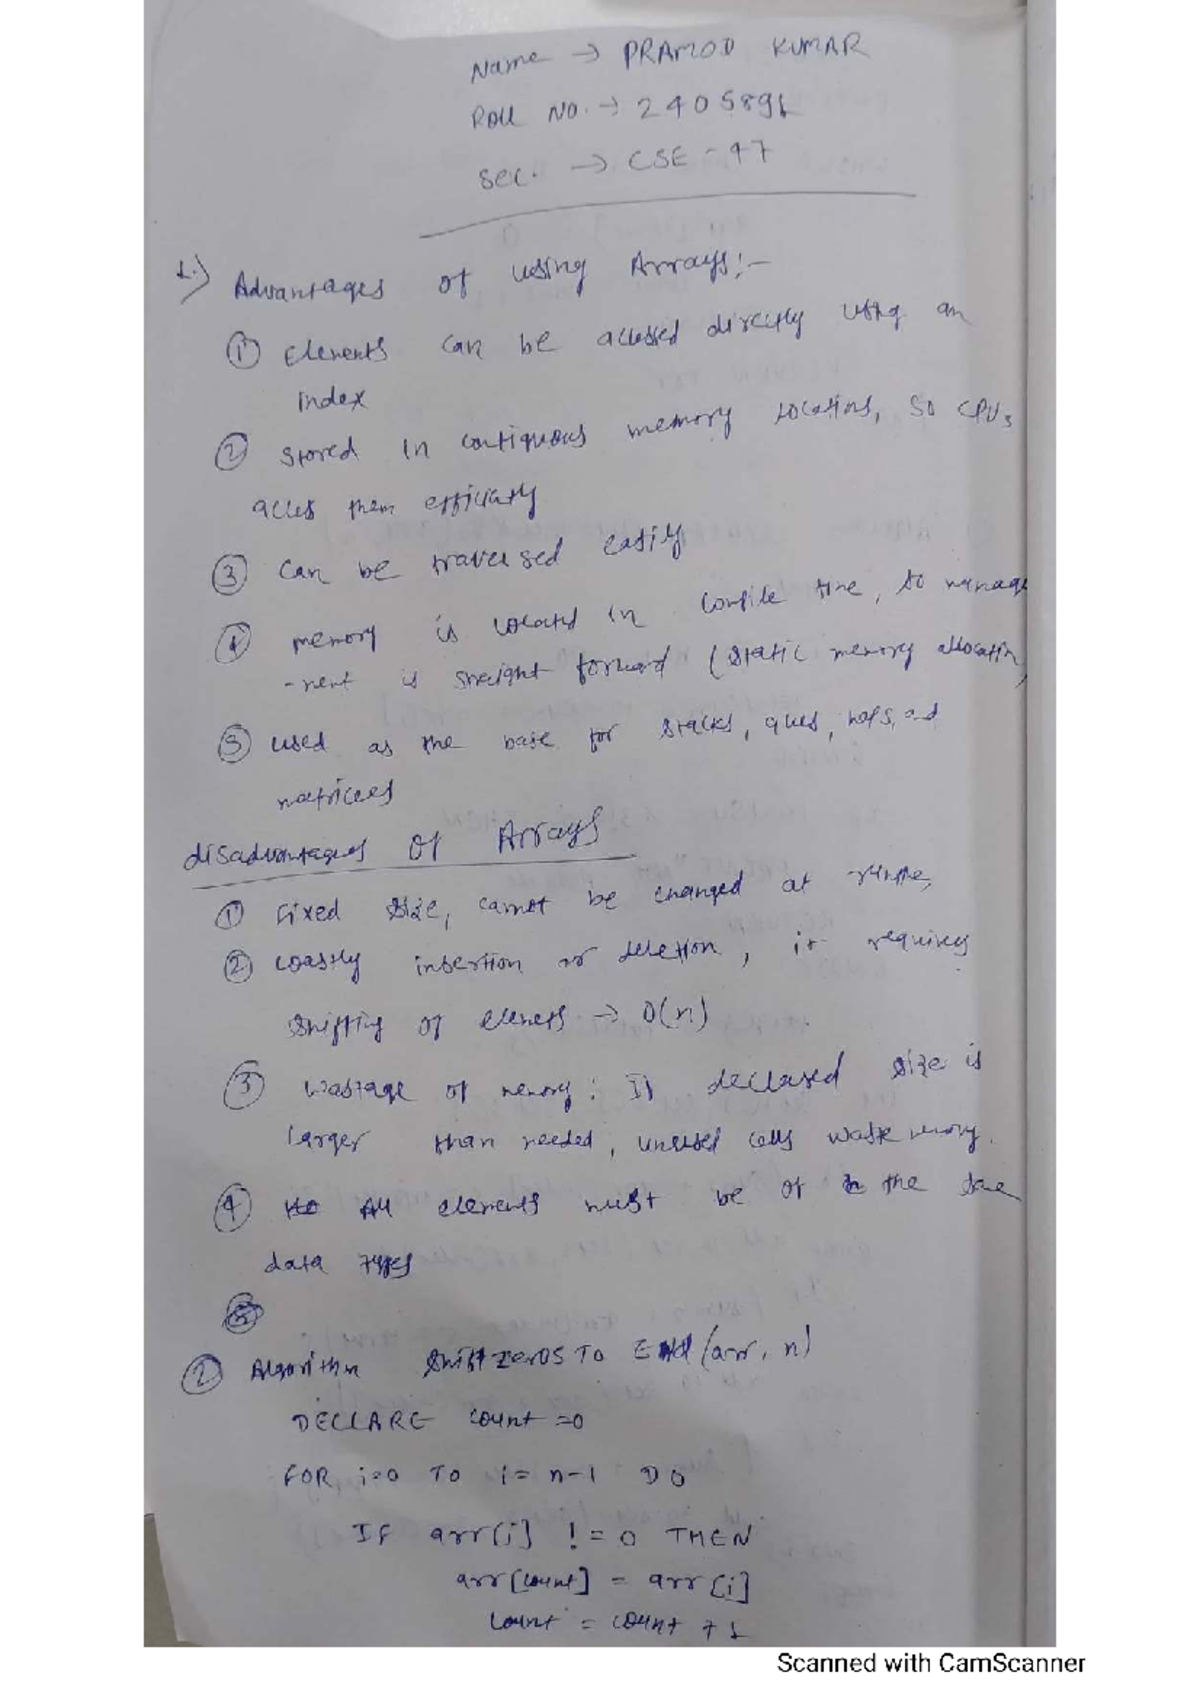 Name → PRAMOD KUMAR
ROLL NO. → 2405891
Sec. → CSE-47
1.) Advantages of using Arrays:-
① Elements can be accessed directly using an
index
② Stored in contiguous memory locations, so CPUs
acces them efficiently
③ Can be traversed easily
④ memory is located in compile time, so manage
-ment is straight forward (static memory allocation)
⑤ used as the base for stacks, ques, and
matrices
disadvantages of Arrays
① Fixed size, cannot be changed at runtime,
② coastly insertion or deletion, it requires
shifting of elements → O(n).
③ wastage of memory: If declared size is
larger than needed, unused cells waste memory.
④ All elements must be of the same
data types
② Algorithm ShiftZerosTo End (arr, n)
DECLARE count =0
FOR i=0 TO i= n-1 DO
IF arr[i] != 0 THEN
arr[count] = arr[i]
count = count + 1
Scanned with CamScanner